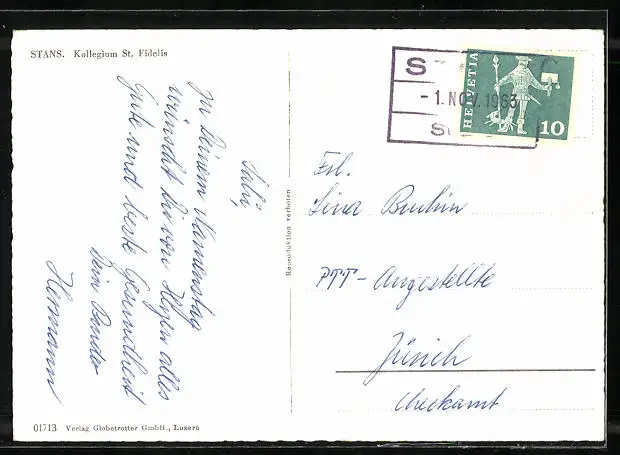 STANS. Kollegium St. Fidelis
Salü,
zu Deinem Namenstag
wünscht Dir von Herzen alles
Gute und beste Gesundheit
Dein Bruder
Hermann
Reproduktion verboten
01713 Verlag Globetrotter GmbH., Luzern
S
- 1. NOV. 1963
HELVETIA
10
Frl.
Lina
PTT-Angestellte
Zürich
Checkamt